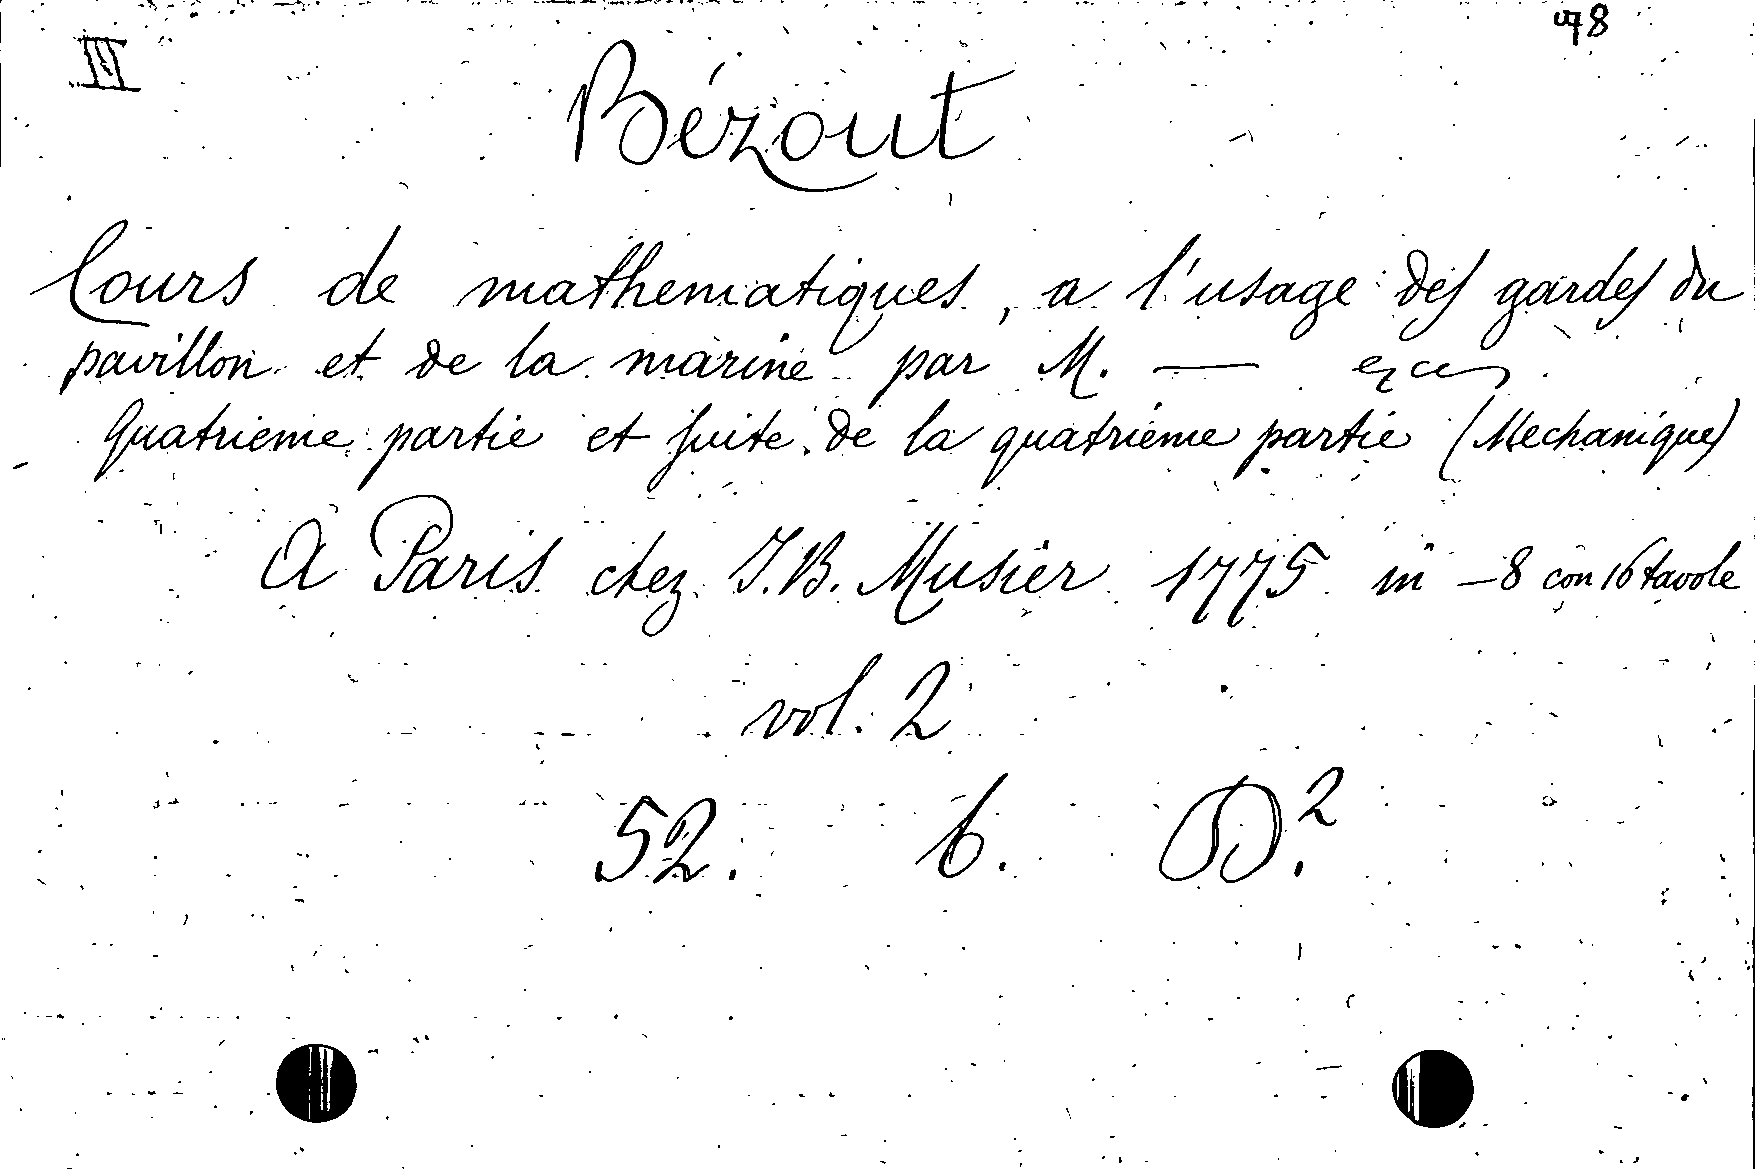 II
78
Bézout
Cours de mathematiques, a l'usage des gardes du
pavillon et de la marine par M. —
Quatrieme partie et suite de la quatrieme partie (Mechanique)
A Paris chez J.B. Musier 1775 in -8 con 16 tavole
vol. 2
52. b. D.²